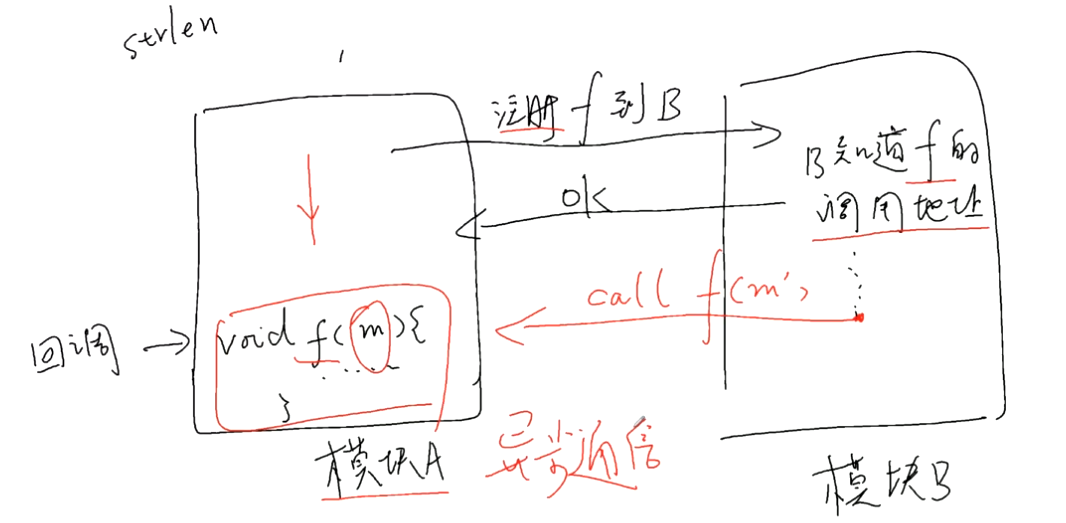 strlen
注册 f 到 B
B知道 f 的
调用地址
OK
call f(m')
回调
void f(m){
}
模块A
异步通信
模块B